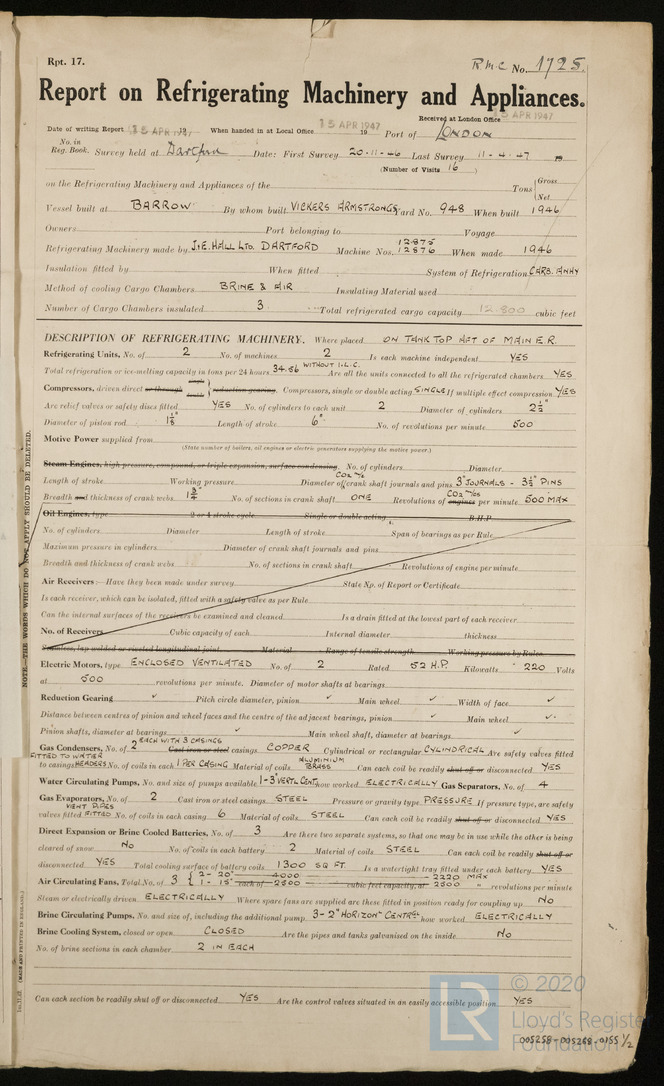 Rpt. 17.
R.M.C No. 1725.
Report on Refrigerating Machinery and Appliances.
Received at London Office 15 APR 1947
Date of writing Report 15 APR 1947 19 When handed in at Local Office 15 APR 1947 19 Port of LONDON
No. in Reg. Book. Survey held at Dartford Date: First Survey 20-11-46 Last Survey 11-4-47 19
(Number of Visits 16 )
on the Refrigerating Machinery and Appliances of the Tons { Gross Net
Vessel built at BARROW By whom built VICKERS ARMSTRONGS Yard No. 948 When built 1946
Owners Port belonging to Voyage
Refrigerating Machinery made by J&E. HALL LTD. DARTFORD Machine Nos. 12875 12876 When made 1946
Insulation fitted by When fitted System of Refrigeration CARB. ANHY
Method of cooling Cargo Chambers BRINE & AIR Insulating Material used
Number of Cargo Chambers insulated 3 Total refrigerated cargo capacity 12.800 cubic feet
DESCRIPTION OF REFRIGERATING MACHINERY. Where placed ON TANK TOP AFT OF MAIN E.R.
Refrigerating Units, No. of 2 No. of machines 2 Is each machine independent YES
Total refrigeration or ice-melting capacity in tons per 24 hours 34.86 WITHOUT I.L.C. Are all the units connected to all the refrigerated chambers YES
Compressors, driven direct or through single double } reduction gearing. Compressors, single or double acting SINGLE If multiple effect compression YES
Are relief valves or safety discs fitted YES No. of cylinders to each unit 2 Diameter of cylinders 2½"
Diameter of piston rod 1⅛" Length of stroke 6" No. of revolutions per minute 500
Motive Power supplied from
(State number of boilers, oil engines or electric generators supplying the motive power.)
Steam Engines, high pressure, compound, or triple expansion, surface condensing. No. of cylinders Diameter
Length of stroke Working pressure Diameter of CO2 M/c crank shaft journals and pins 3" JOURNALS - 3½" PINS
Breadth and thickness of crank webs 1¾" No. of sections in crank shaft ONE Revolutions of engines CO2 M/cs per minute 500 MAX
Oil Engines, type 2 or 4 stroke cycle Single or double acting B.H.P.
No. of cylinders Diameter Length of stroke Span of bearings as per Rule
Maximum pressure in cylinders Diameter of crank shaft journals and pins
Breadth and thickness of crank webs No. of sections in crank shaft Revolutions of engine per minute
Air Receivers:—Have they been made under survey State No. of Report or Certificate
Is each receiver, which can be isolated, fitted with a safety valve as per Rule
Can the internal surfaces of the receivers be examined and cleaned Is a drain fitted at the lowest part of each receiver
No. of Receivers Cubic capacity of each Internal diameter thickness
Seamless, lap welded or riveted longitudinal joint Material Range of tensile strength Working pressure by Rules
Electric Motors, type ENCLOSED VENTILATED No. of 2 Rated 52 H.P. Kilowatts 220 Volts
at 500 revolutions per minute. Diameter of motor shafts at bearings
Reduction Gearing ✓ Pitch circle diameter, pinion ✓ Main wheel ✓ Width of face ✓
Distance between centres of pinion and wheel faces and the centre of the adjacent bearings, pinion ✓ Main wheel ✓
Pinion shafts, diameter at bearings ✓ Main wheel shaft, diameter at bearings ✓
Gas Condensers, No. of 2 EACH WITH 3 CASINGS Cast iron or steel casings COPPER Cylindrical or rectangular CYLINDRICAL Are safety valves fitted
FITTED TO WATER HEADERS to casings No. of coils in each 1 PER CASING Material of coils ALUMINIUM BRASS Can each coil be readily shut off or disconnected YES
Water Circulating Pumps, No. and size of pumps available 1-3" VERTL CENT how worked ELECTRICALLY Gas Separators, No. of 4
Gas Evaporators, No. of 2 Cast iron or steel casings STEEL Pressure or gravity type PRESSURE If pressure type, are safety
valves fitted VENT PIPES FITTED No. of coils in each casing 6 Material of coils STEEL Can each coil be readily shut off or disconnected YES
Direct Expansion or Brine Cooled Batteries, No. of 3 Are there two separate systems, so that one may be in use while the other is being
cleared of snow No No. of coils in each battery 2 Material of coils STEEL Can each coil be readily shut off or
disconnected YES Total cooling surface of battery coils 1300 SQ FT. Is a watertight tray fitted under each battery YES
Air Circulating Fans, Total No. of 3 { 2 - 20" 1 - 15" each of 4000 2500 cubic feet capacity, at 2220 MAX 2500 " revolutions per minute
Steam or electrically driven ELECTRICALLY Where spare fans are supplied are these fitted in position ready for coupling up No
Brine Circulating Pumps, No. and size of, including the additional pump 3-2" HORIZON CENTRE how worked ELECTRICALLY
Brine Cooling System, closed or open CLOSED Are the pipes and tanks galvanised on the inside No
No. of brine sections in each chamber 2 IN EACH
Can each section be readily shut off or disconnected YES Are the control valves situated in an easily accessible position YES
NOTE.—THE WORDS WHICH DO NOT APPLY SHOULD BE DELETED.
(MADE AND PRINTED IN ENGLAND.)
LR
© 2020
Lloyd's Register
Foundation
005258-005268-0155 1/2